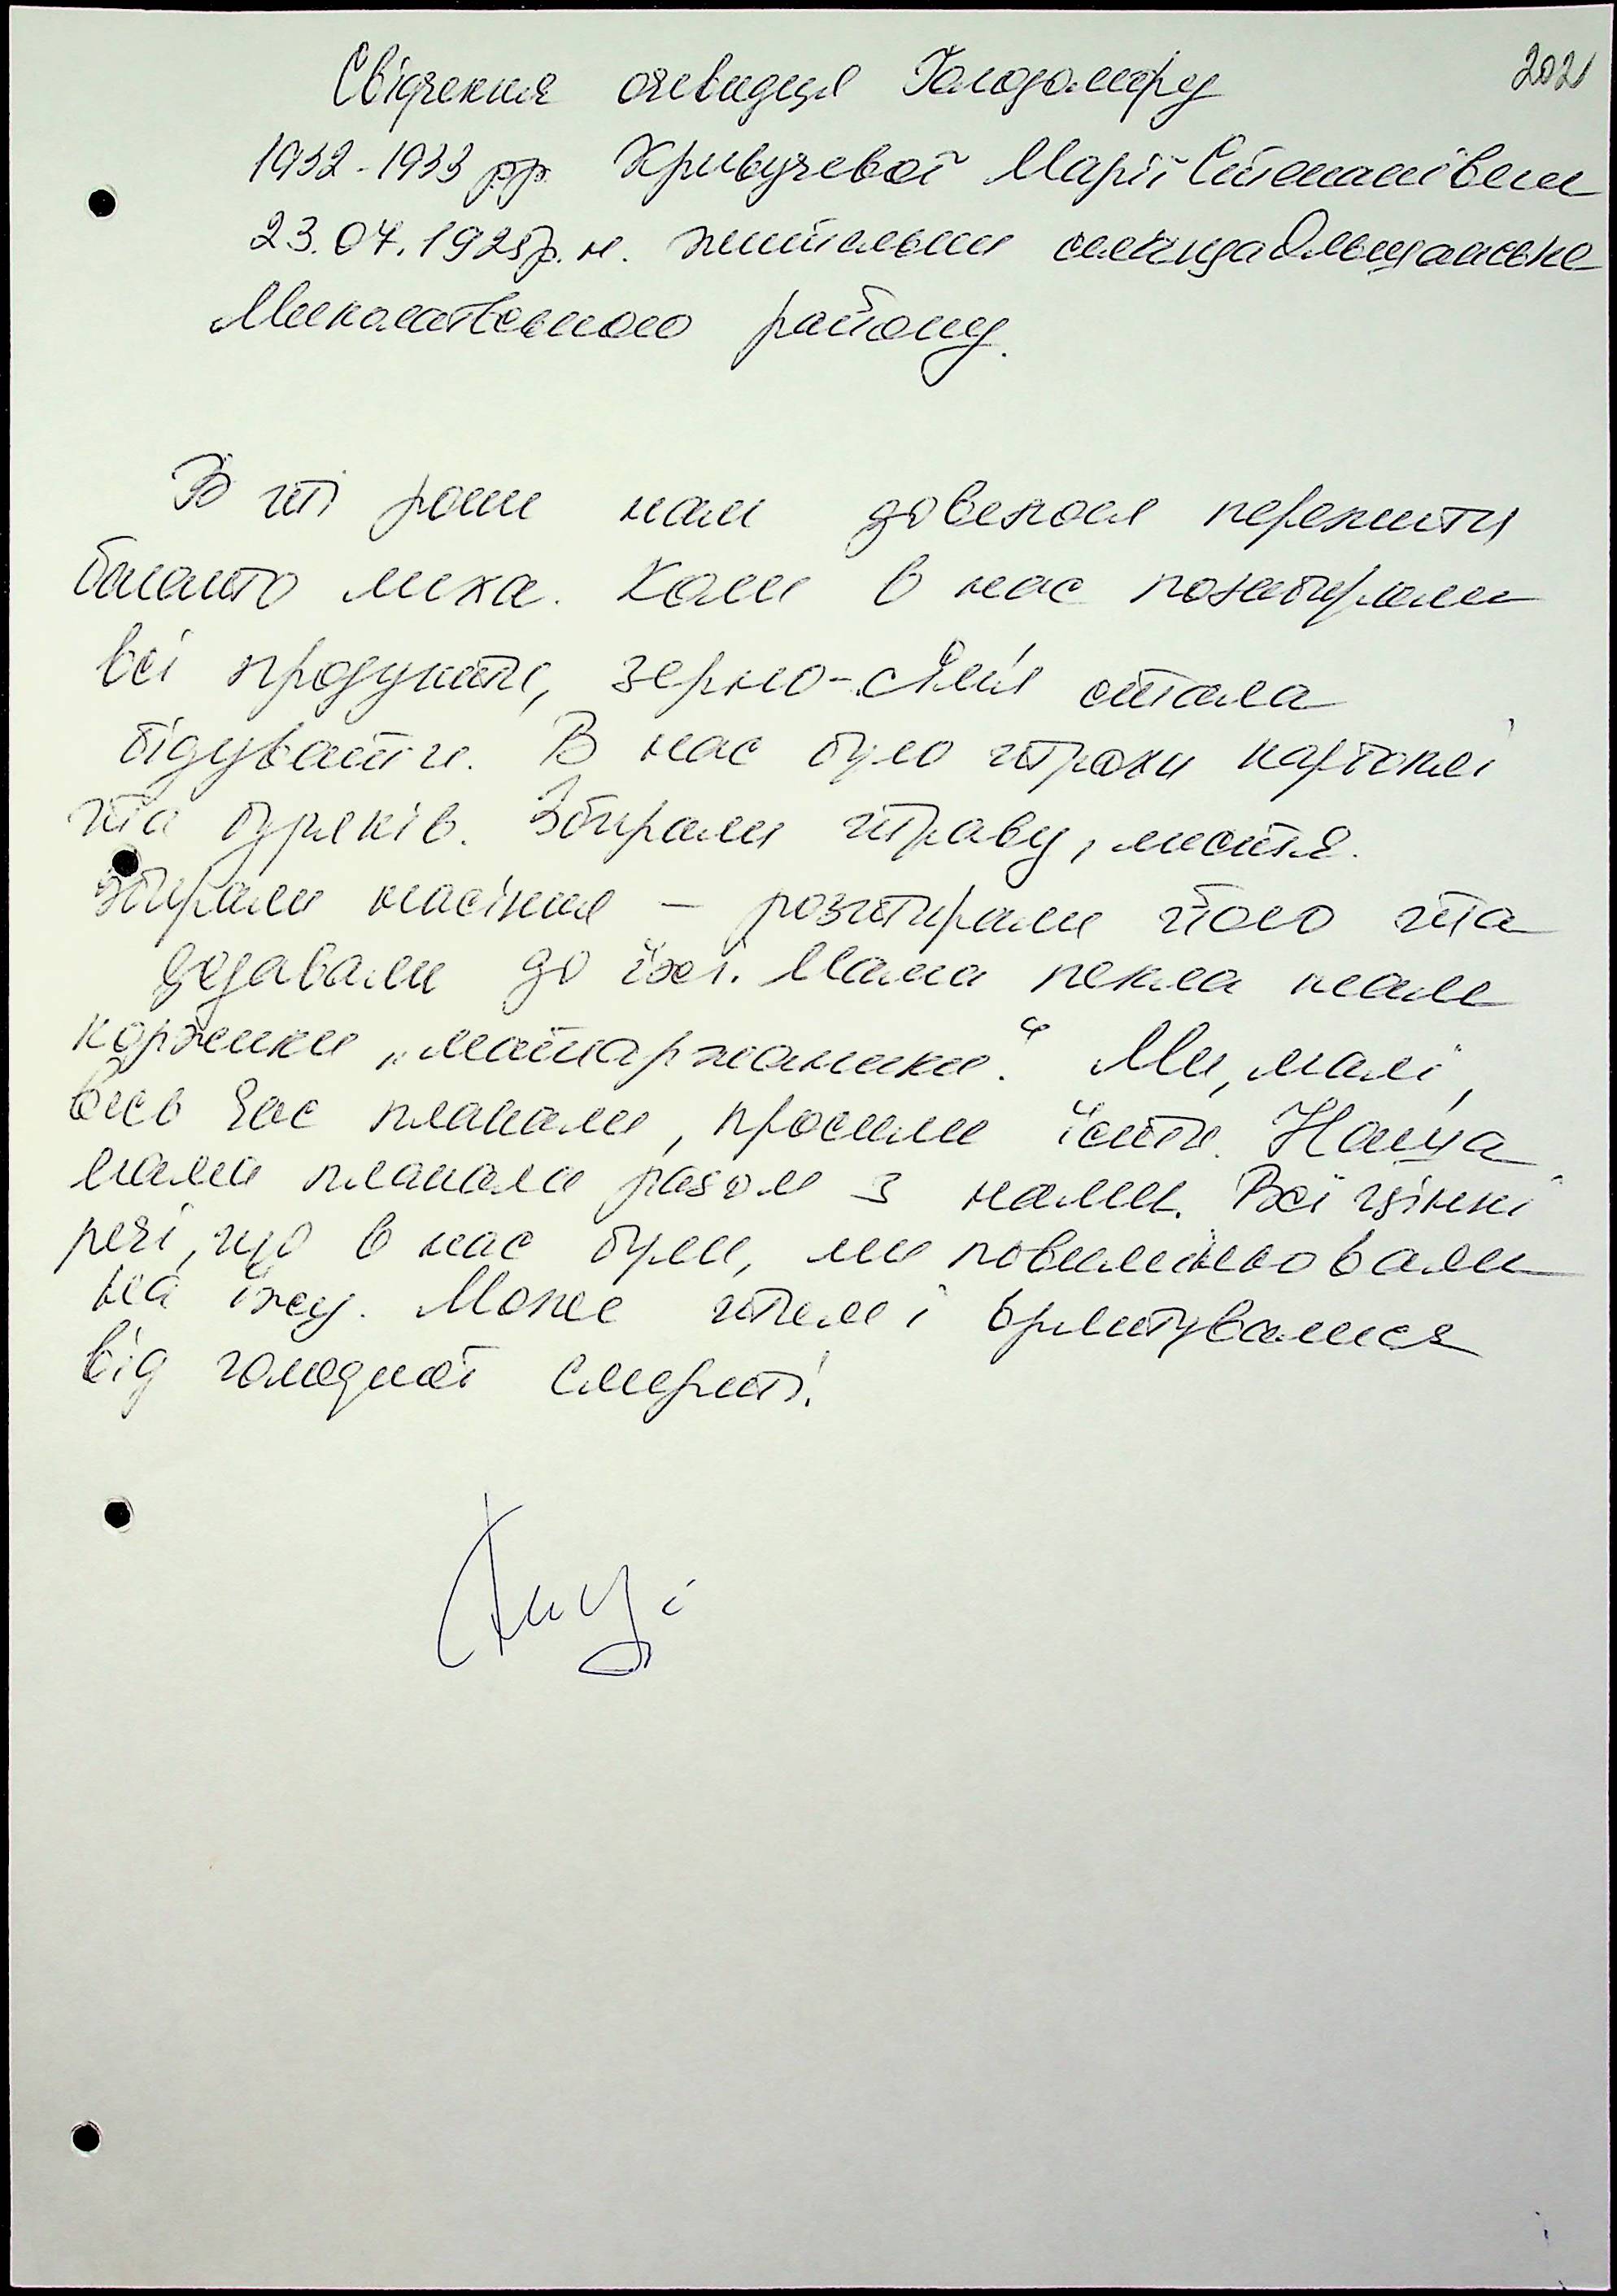 202
Свідчення очевидця Голодомору
1932-1933 рр. Кривучевої Марії Степанівни
23.04.1925р.н. жительки селища Ольшанське
Миколаївського району.
В ті роки нам довелося пережити
багато лиха. Коли в нас позабирали
всі продукти, зерно-сім'я стала
бідувати. В нас було трохи картоплі
та буряків. Збирали траву, листя.
Збирали насіння - розтирали його та
додавали до їжі. Мама пекла нам
коржики „маторжаники“. Ми, малі,
весь час плакали, просили їсти. Наша
мама плакала разом з нами. Всі цінні
речі, що в нас були, ми повимінювали
на їжу. Може тим і врятувалися
від голодної смерті.